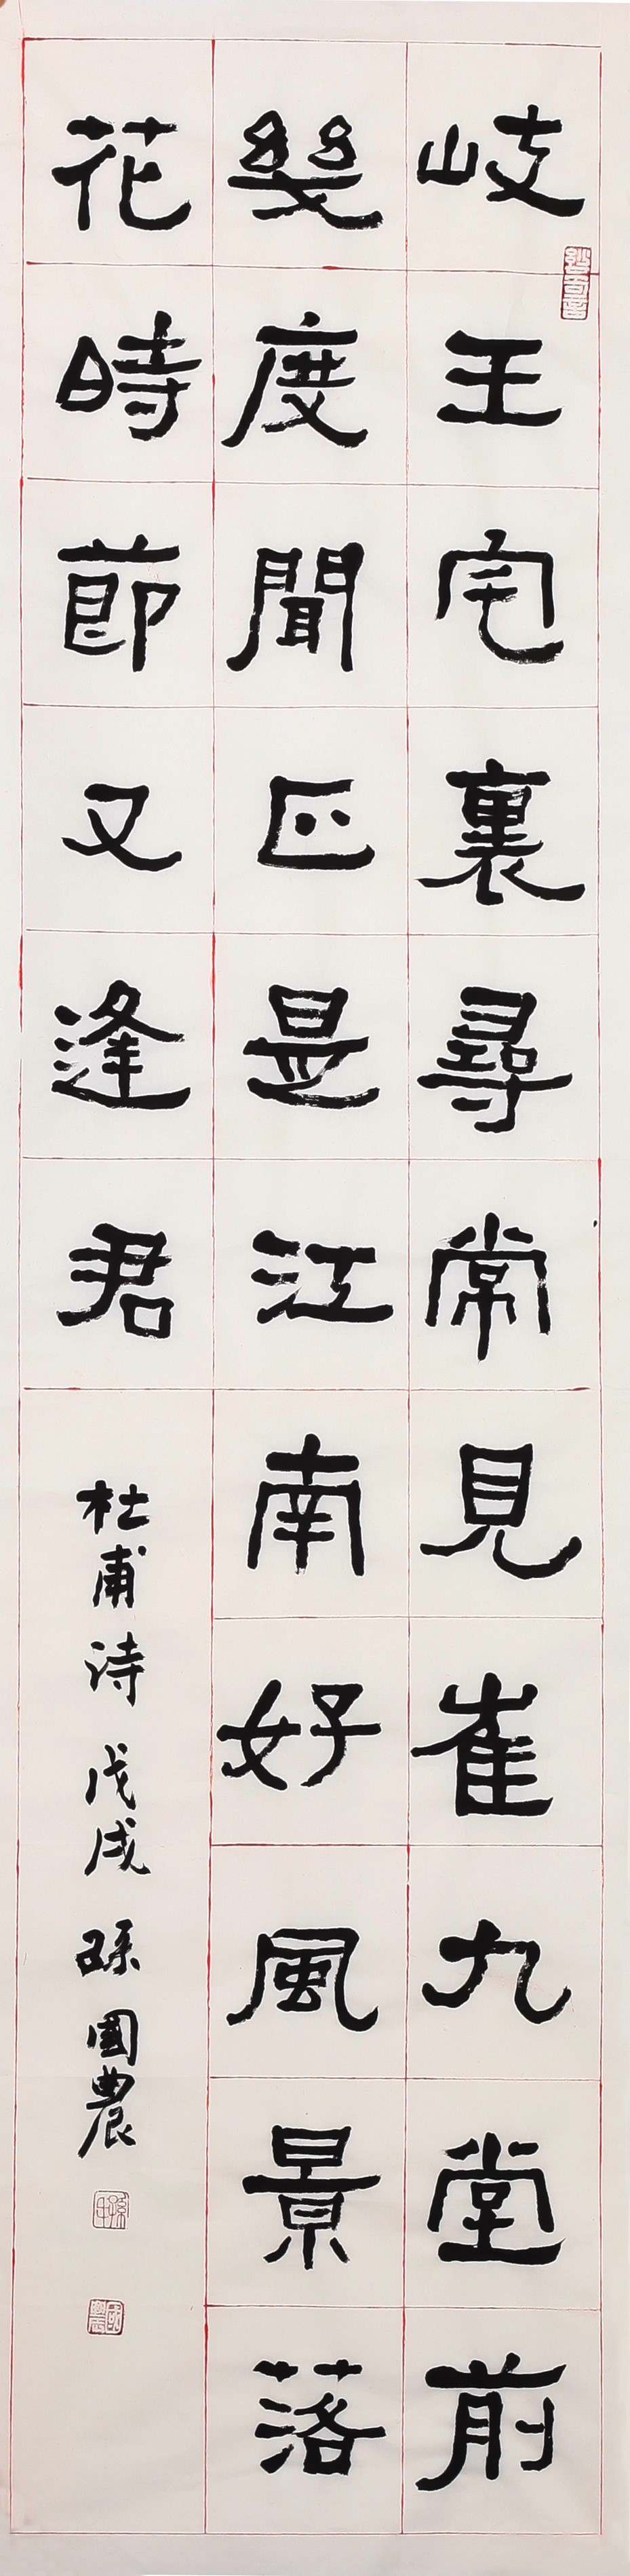 岐王宅裏尋常見崔九堂前
幾度聞正是江南好風景落
花時節又逢君
杜甫詩 戊戌 孫國農